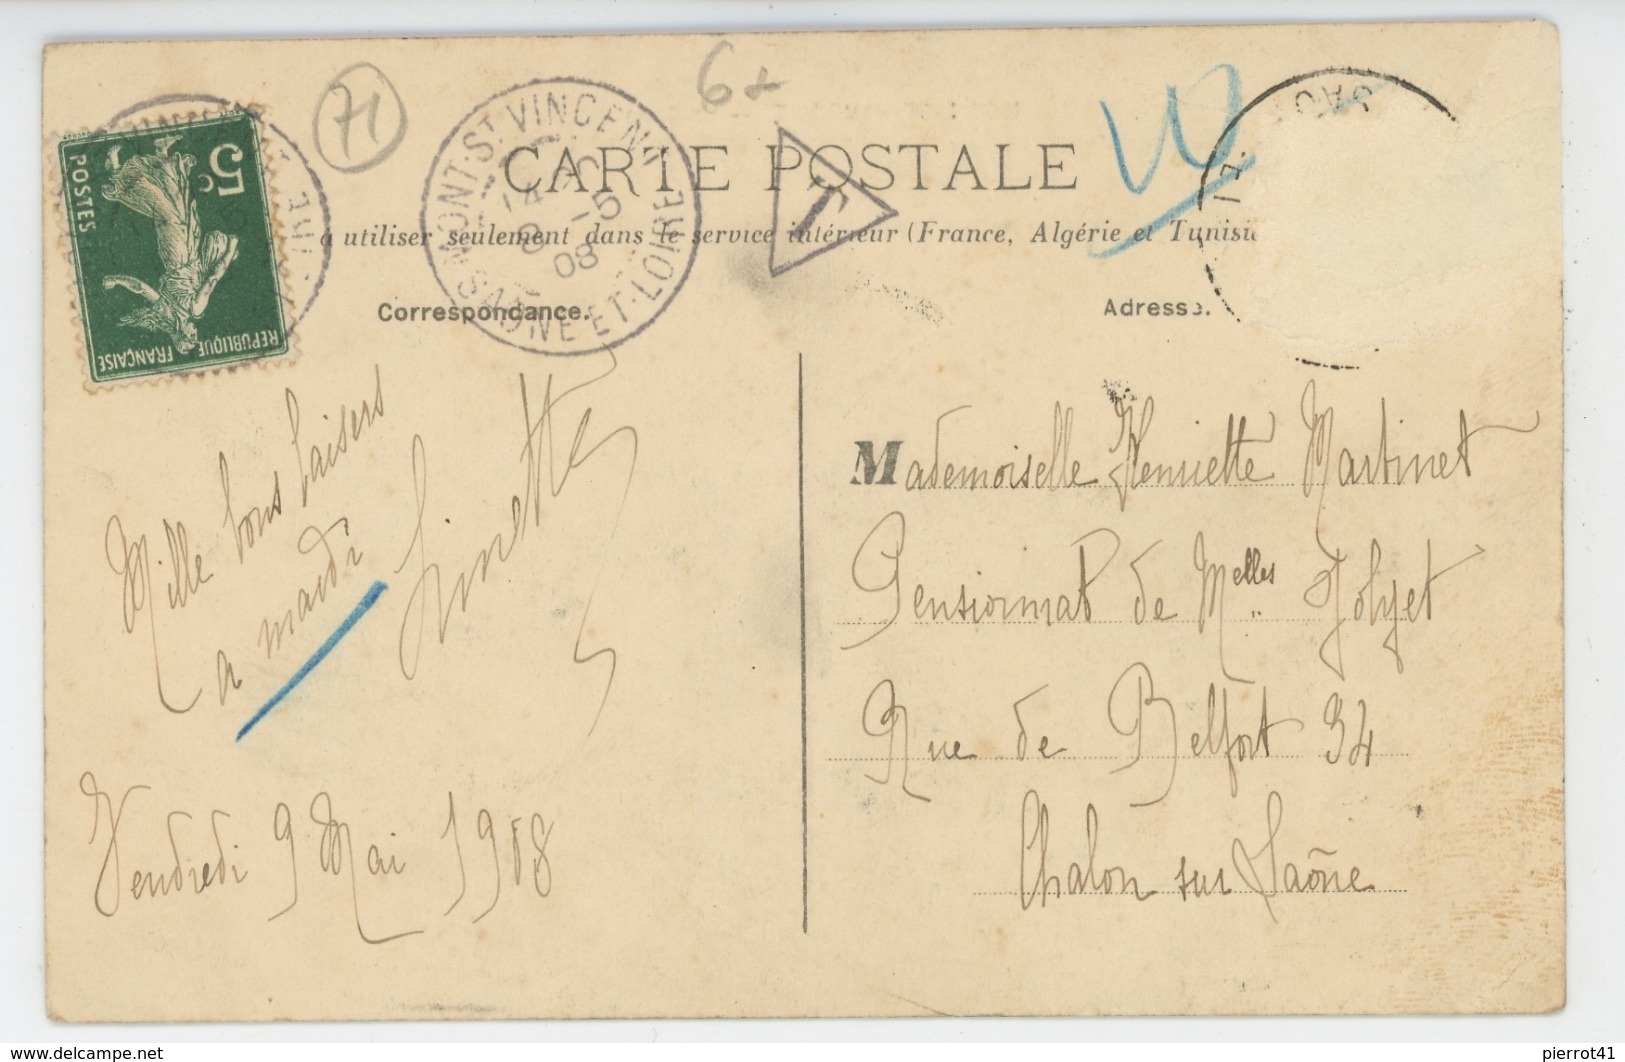 71
6+
5c
POSTES
REPUBLIQUE FRANÇAISE
MONT-ST VINCENT
5
08
SAONE-ET-LOIRE
CARTE POSTALE
T
à utiliser seulement dans le service intérieur (France, Algérie et Tunisie
Correspondance.
Adresse.
Mille bons baisers
a mardi
Ginette
Vendredi 9 Mai 1908
Mademoiselle Henriette Martinet
Pensionnat de Melles Jolyet
Rue de Belfort 34
Chalon sur Saône
delcampe.net
pierrot41